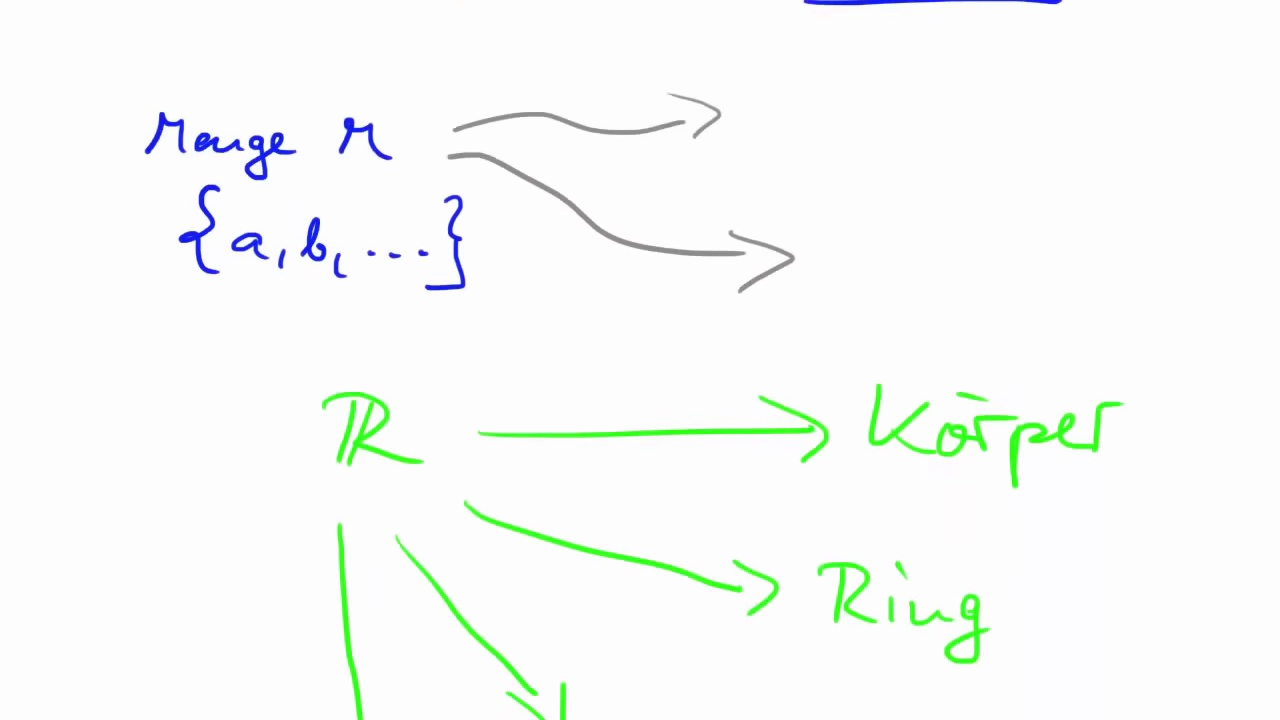 Menge M
{a, b, ...}
ℝ → Körper
Ring